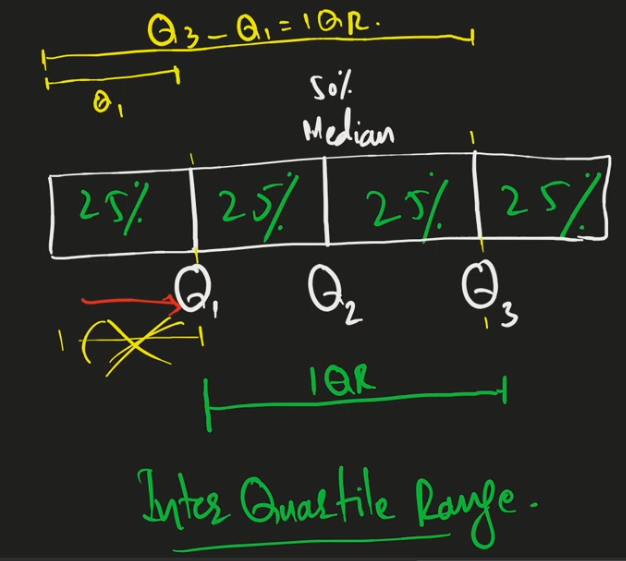 Q3 - Q1 = IQR.
Q1
50%
Median
25% 25% 25% 25%
Q1 Q2 Q3
IQR
Inter Quartile Range.